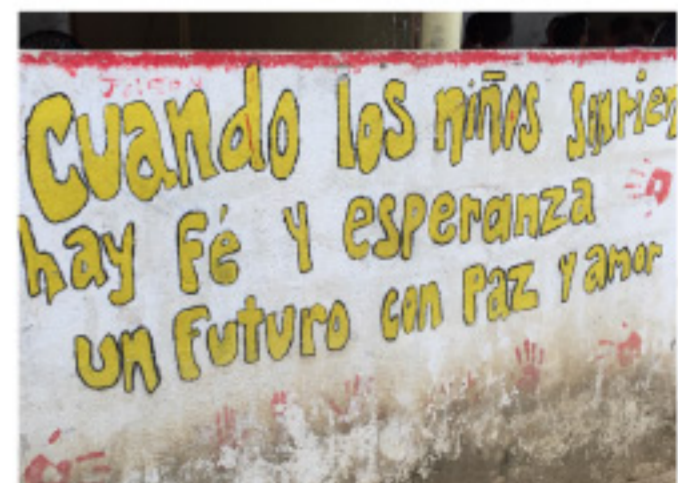 Cuando los niños sonrien
hay Fé y esperanza
un Futuro con Paz y amor